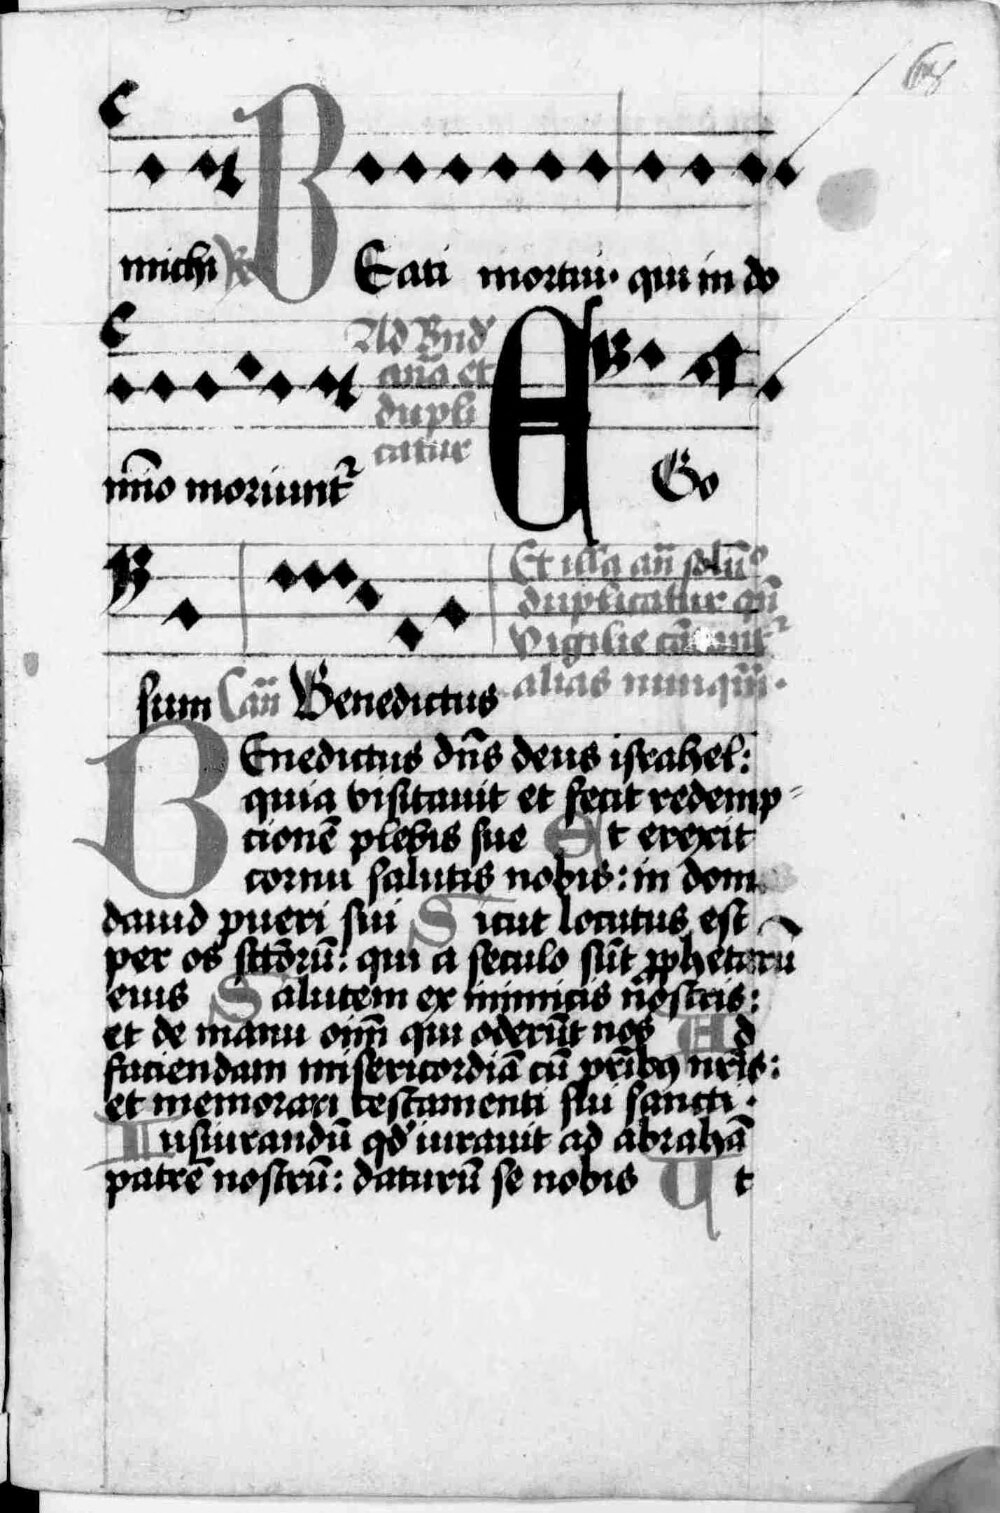 michi R BEati mortui· qui in do
mĩo moriunt᷑
Ad Bñd᷑
añã et
dupli
catur
EGo
Et illa añ solũ
duplicatur qñ
Vigilie cãtant᷑
alias nunqũ·
sum Cañ Benedictus
BEnedictus dñs deus israhel:
quia visitauit et fecit redemp⸗
cionẽ plebis sue Et erexit
cornu salutis nobis: in domo
dauid pueri sui Sicut locutus est
per os sctõrũ: qui a seculo sũt ꝓphetarũ
eius Salutem ex inimicis nostris:
et de manu oim̃ qui oderũt nos Ad
faciendam misericordiã cũ pr̃ibꝯ nr̃is:
et memorari testamenti sui sancti·
Iusiurandũ qd᷑ iurauit ad abrahã
patrẽ nostrũ: daturũ se nobis Ut